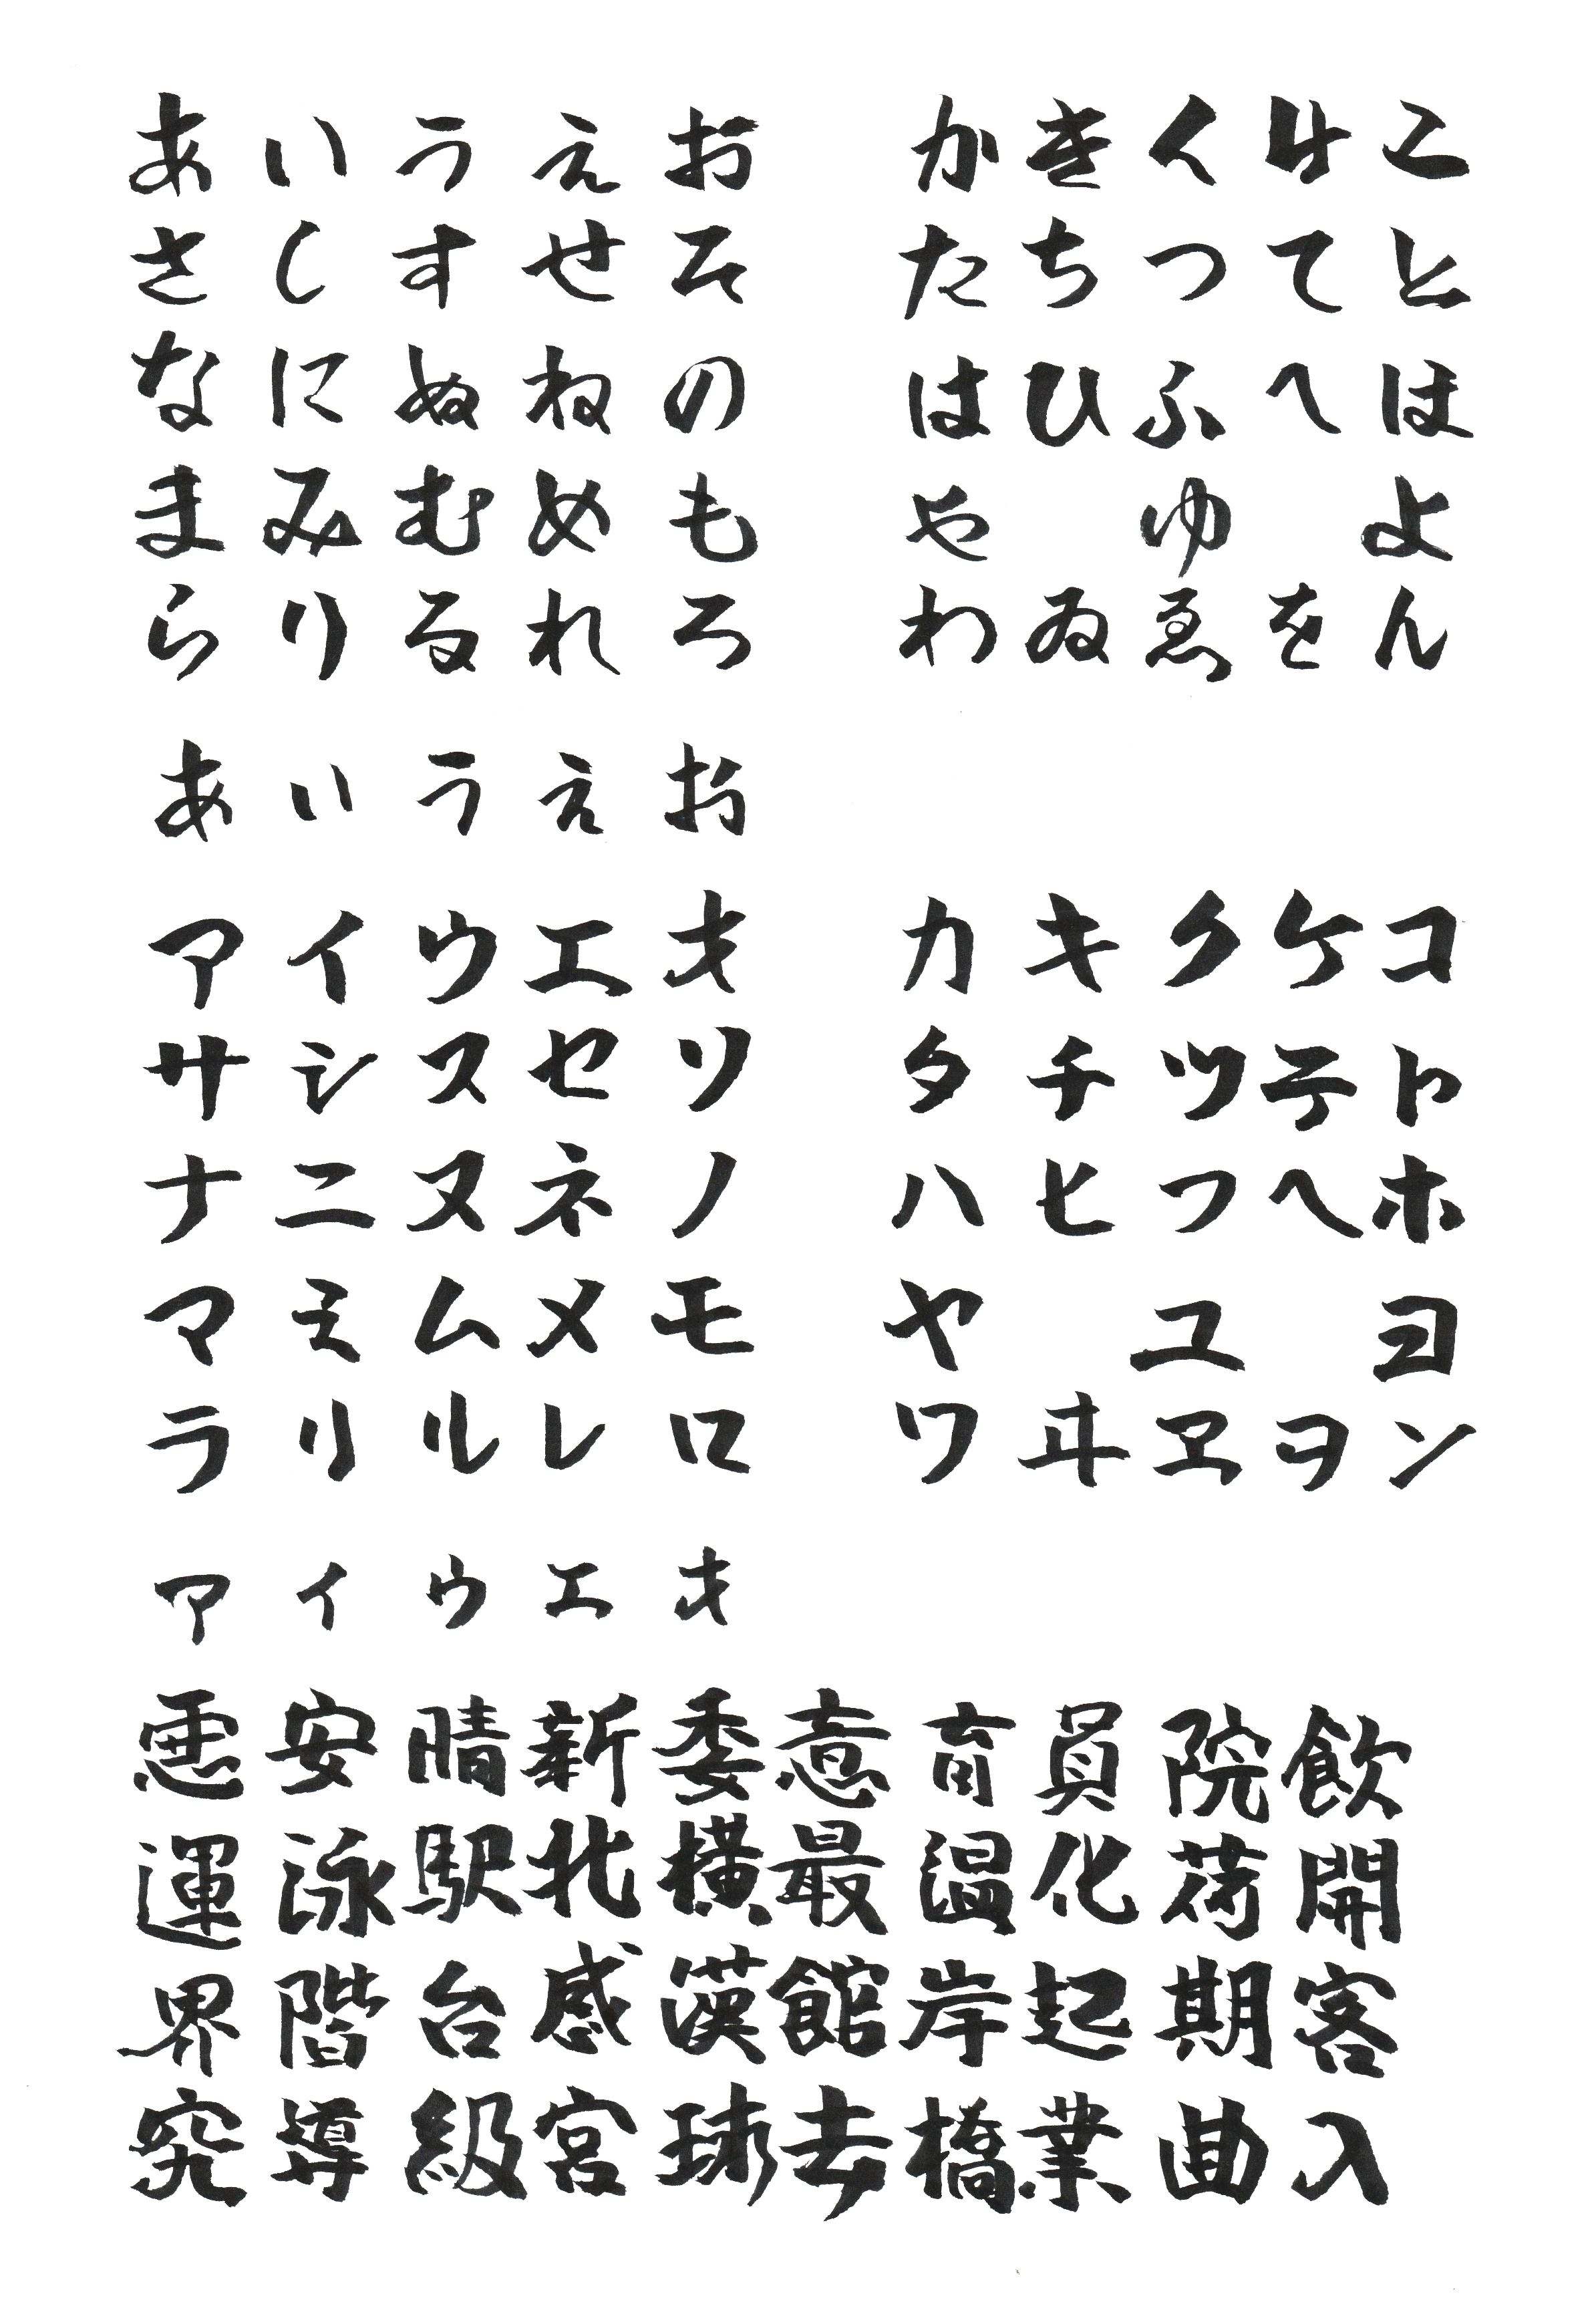 あいうえお かきくけこ
さしすせそ たちつてと
なにぬねの はひふへほ
まみむめも や ゆ よ
らりるれろ わゐゑをん
あいうえお
アイウエオ カキクケコ
サシスセソ タチツテト
ナニヌネノ ハヒフヘホ
マミムメモ ヤ ユ ヨ
ラリルレロ ワヰヱヲン
アイウエオ
悪安晴新委意育員院飲
運泳駅北横最温化荷開
界階台感漢館岸起期客
究導級宮球去橋業曲入